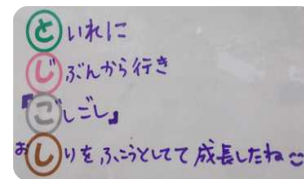 といれに
じぶんから行き
『ごしごし』
おしりをふこうとしてて成長したね